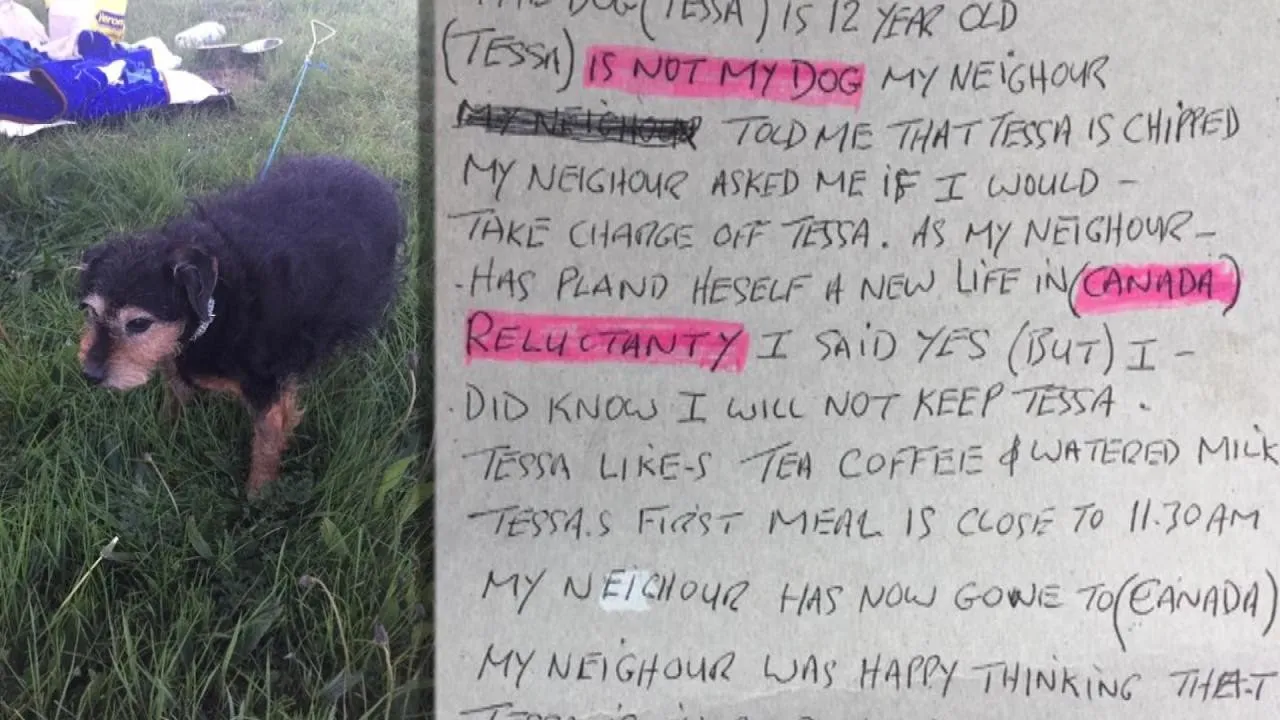 THE DOG (TESSA) IS 12 YEAR OLD
(TESSA) IS NOT MY DOG MY NEIGHOUR
MY NEIGHOUR TOLD ME THAT TESSA IS CHIPPED
MY NEIGHOUR ASKED ME IF I WOULD –
TAKE CHARGE OFF TESSA. AS MY NEIGHOUR –
. HAS PLAND HESELF A NEW LIFE IN (CANADA)
RELUCTANTY I SAID YES (BUT) I –
. DID KNOW I WILL NOT KEEP TESSA .
TESSA LIKE-S TEA COFFEE & WATERED MILK
TESSA.S FIRST MEAL IS CLOSE TO 11.30 AM
MY NEIGHOUR HAS NOW GONE TO (CANADA)
MY NEIGHOUR WAS HAPPY THINKING THAT